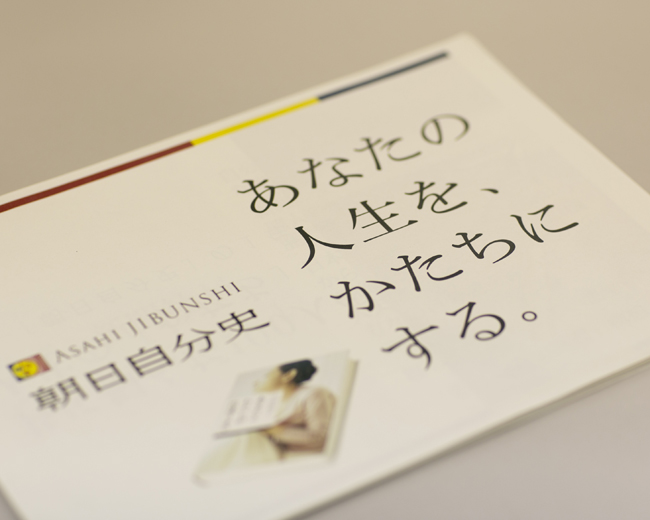 あなたの
人生を、
かたちに
する。
ASAHI JIBUNSHI
朝日自分史